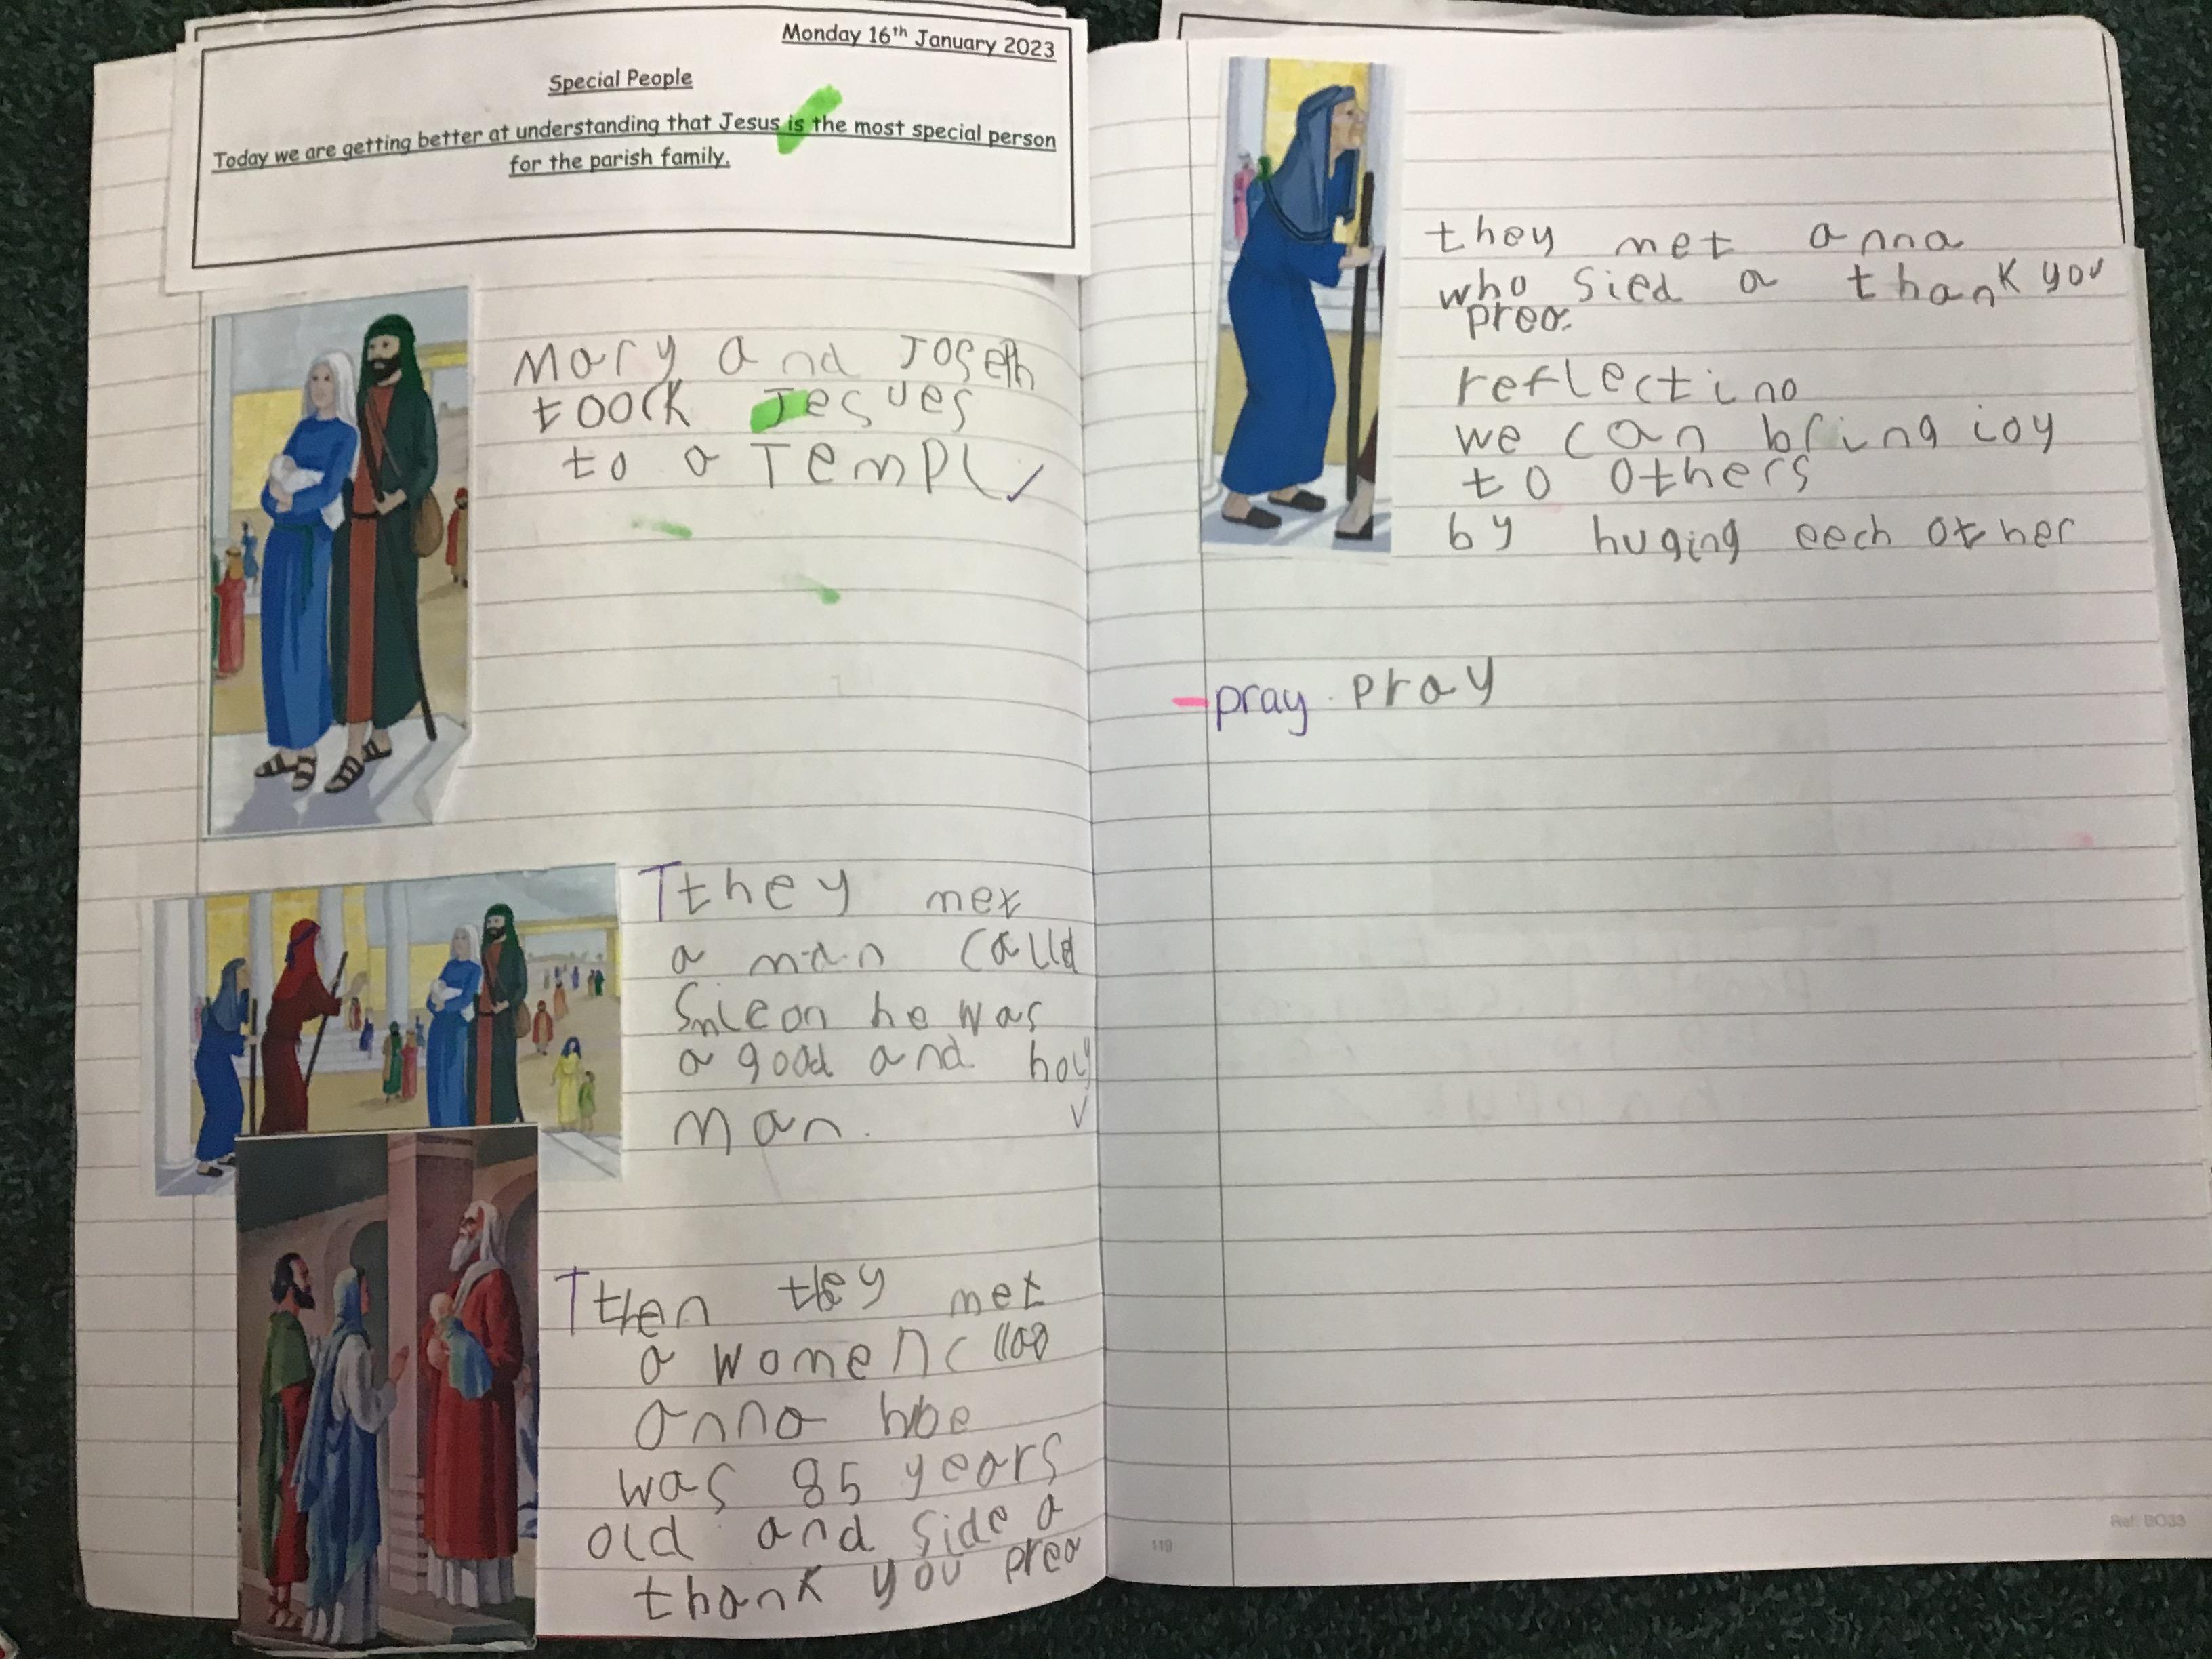 Monday 16th January 2023
Special People
Today we are getting better at understanding that Jesus is the most special person
for the parish family.
Mary and Joseph
toock Jesues
to a Templ
Tthey met
a man calld
Smieon he was
a good and holy
man.
Tthen they met
a women
anna
was 85 years
old and side a
thank you prea
they met anna
who sied a thank you
prea.
reflectino
we can bring ioy
to others
by huging eech other
pray. pray
119
Ref: BO33